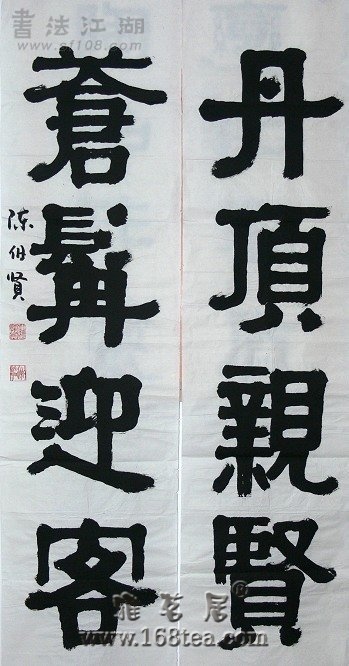 書法江湖
www.sf108.com
丹頂親賢
蒼髯迎客
陈伯贤
雅茗居
www.168tea.com